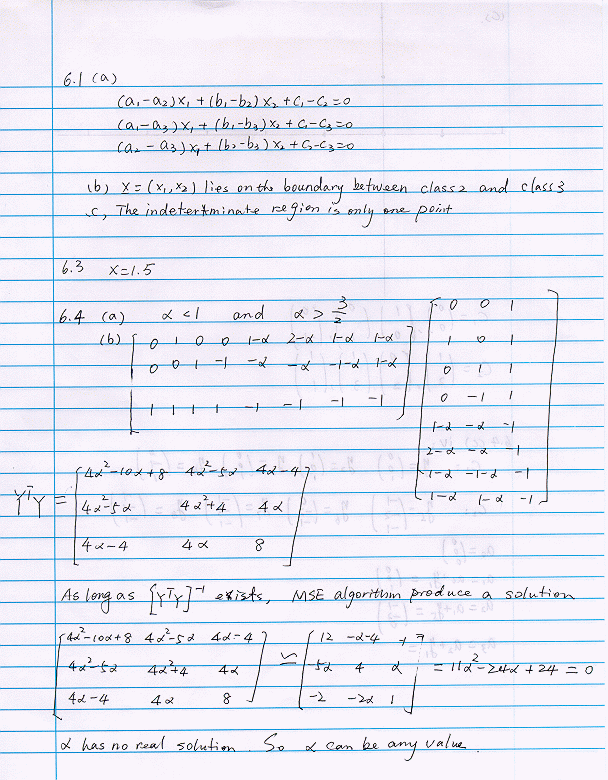 6.1 (a)
(a₁-a₂)x₁ + (b₁-b₂)x₂ + c₁-c₂=0
(a₁-a₃)x₁ + (b₁-b₃)x₂ + c₁-c₃=0
(a₂-a₃)x₁ + (b₂-b₃)x₂ + c₂-c₃=0
(b) X=(x₁,x₂) lies on the boundary between class 2 and class 3
c, The indetertminate region is only one point
6.3 X=1.5
6.4 (a) α<1 and α> 3/2
(b) [ 0 1 0 0 1-α 2-α 1-α 1-α
0 0 1 -1 -α -α -1-α 1-α
1 1 1 1 -1 -1 -1 -1 ]
[ 0 0 1
1 0 1
0 1 1
0 -1 1
1-α -α -1
2-α -α -1
1-α -1-α -1
1-α 1-α -1 ]
YᵀY = [ 4α²-10α+8 4α²-5α 4α-4
4α²-5α 4α²+4 4α
4α-4 4α 8 ]
As long as [YᵀY]⁻¹ exists, MSE algorithm produce a solution
[ 4α²-10α+8 4α²-5α 4α-4
4α²-5α 4α²+4 4α
4α-4 4α 8 ]
≃ [ 12 -α-4 +7
5α 4 α
-2 -2α 1 ] = 11α²-24α+24=0
α has no real solution. So α can be any value.